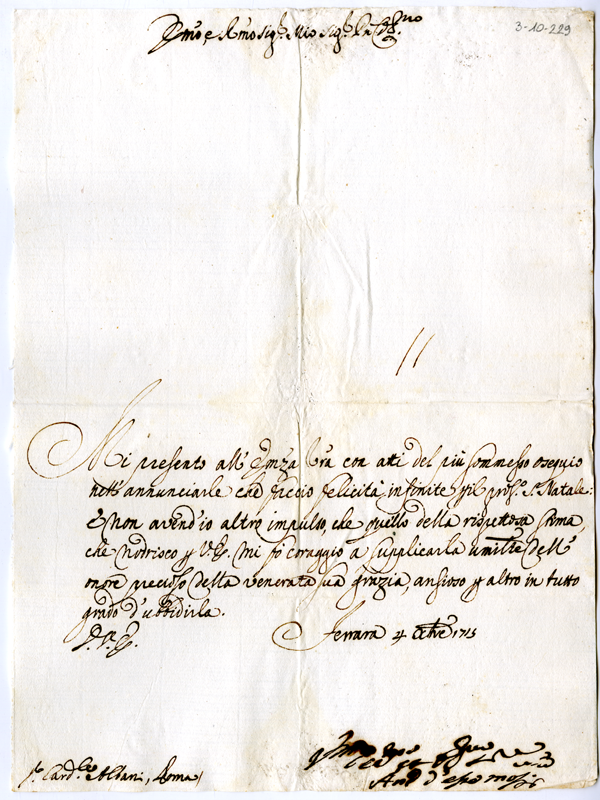 3-10-229
Em̃o e Rm̃o Sig.r Mio Sig.r
Mi presento all' Em̃za Vr̃a con atti del più sommesso osequio
nell' annunciarle che faccio felicità infinite p il pross.o S. Natale:
E non avend'io altro impulso, che quello della rispettosa stima,
che nodrisco p V.E. mi fò coraggio a supplicarla dell'
onore precioso della venerata sua grazia, ansioso p altro in tutto
grado d'ubbidirla.
Ferrara 1715
Card.le Albani, Roma